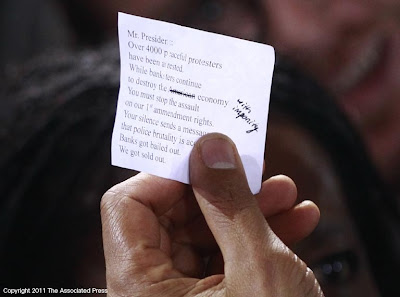 Mr. President:
Over 4000 peaceful protesters
have been arrested.
While banksters continue
to destroy the economy with
impunity
You must stop the assault
on our 1st ammendment rights.
Your silence sends a message
that police brutality is
Banks got bailed out.
We got sold out.
Copyright 2011 The Associated Press